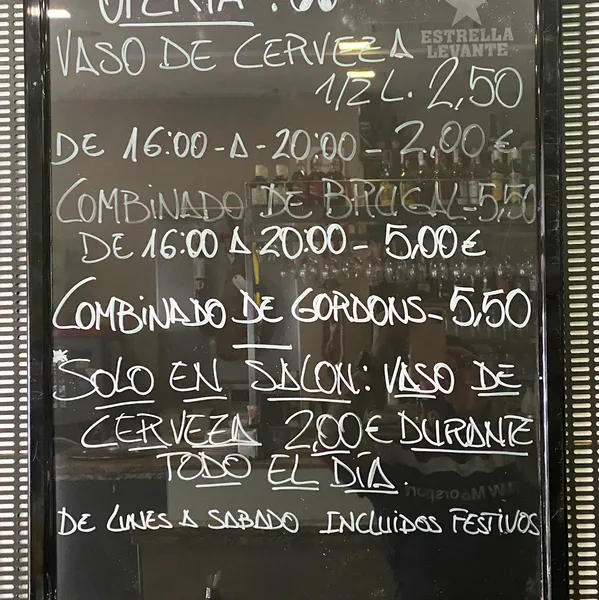 OFERTA
ESTRELLA
LEVANTE
VASO DE CERVEZA
1/2 L. 2,50
DE 16:00 - A - 20:00 - 2,00 €
COMBINADO DE BRUGAL - 5,50
DE 16:00 A 20:00 - 5,00 €
COMBINADO DE GORDONS - 5,50
* SOLO EN SALON: VASO DE
CERVEZA 2,00 € DURANTE
TODO EL DÍA.
DE LUNES A SABADO INCLUIDOS FESTIVOS